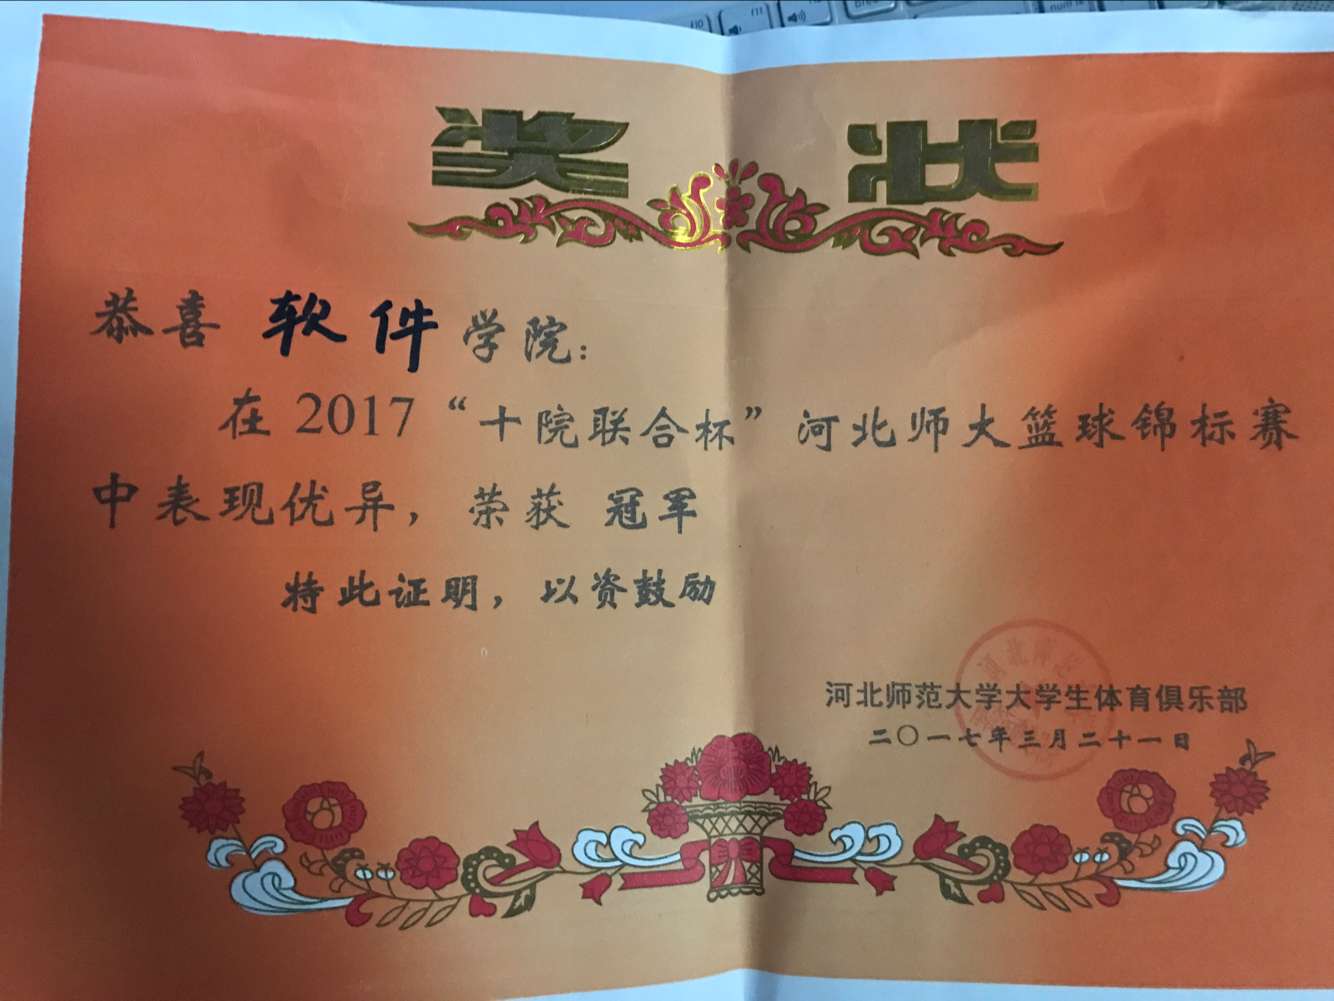 奖状
恭喜 软件 学院：
在 2017 “十院联合杯” 河北师大篮球锦标赛
中表现优异，荣获 冠军
特此证明，以资鼓励
河北师范大学大学生体育俱乐部
二〇一七年三月二十一日